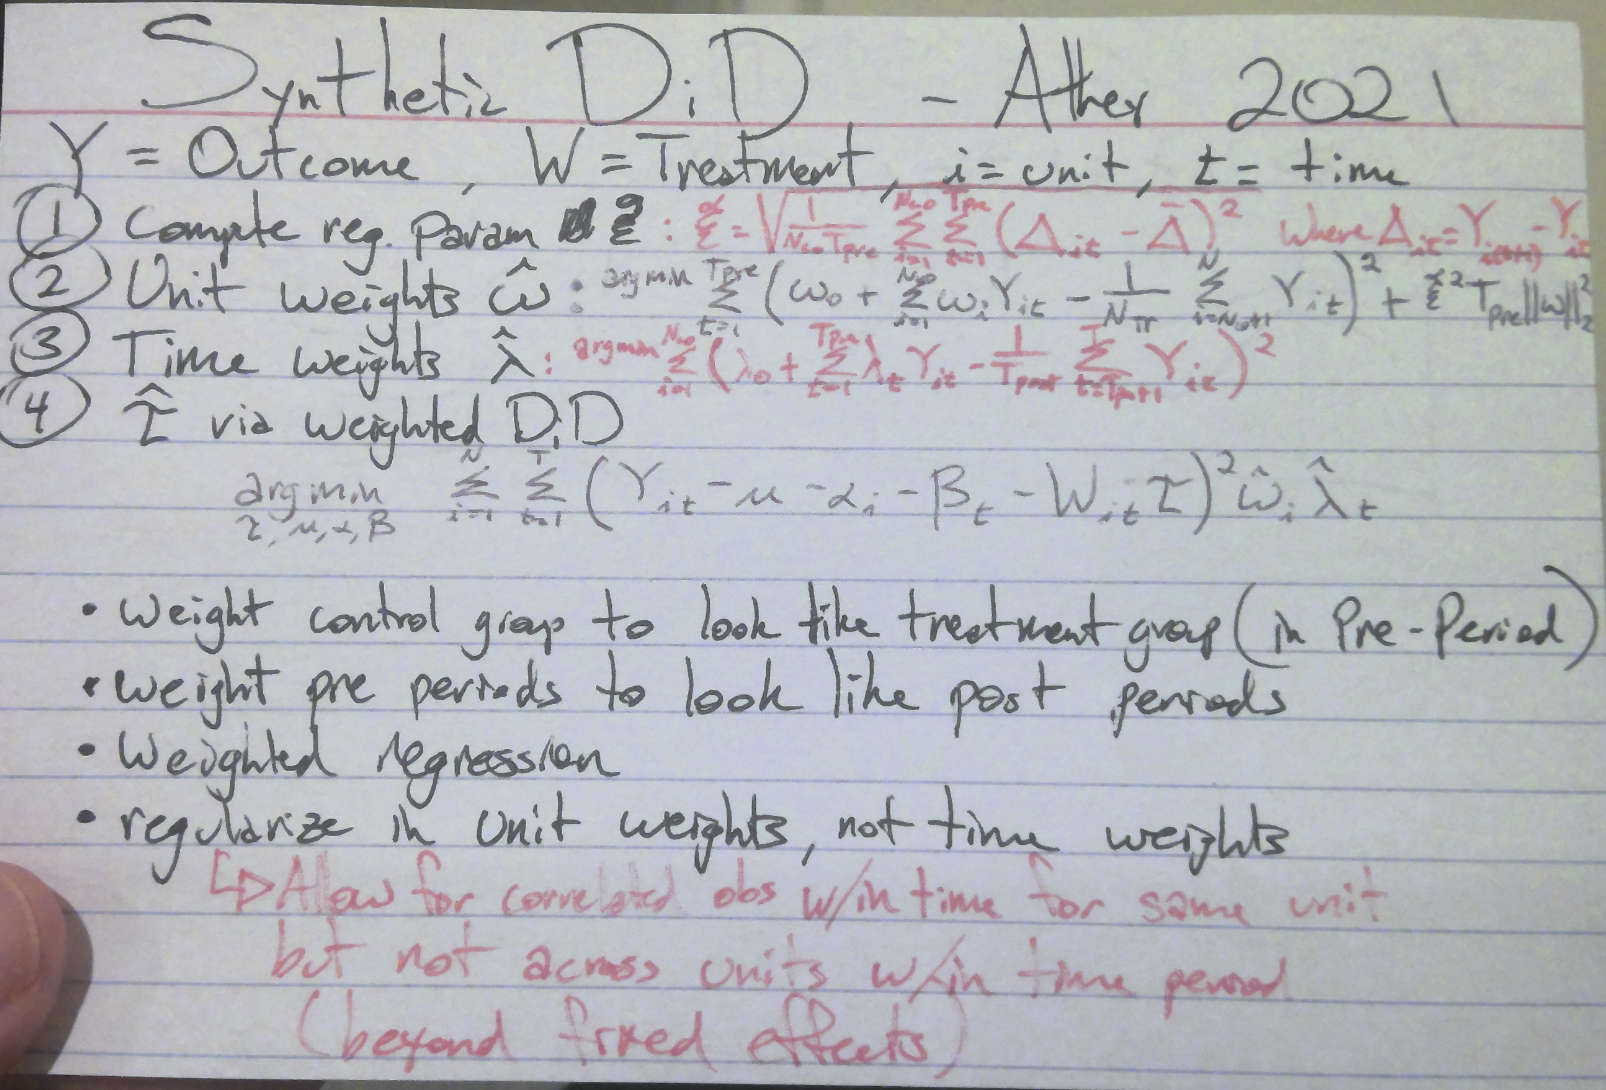 Synthetic DiD - Athey 2021
Y = Outcome, W = Treatment, i = unit, t = time
① Compute reg. param ξ : ξ = √(1/(N_co T_pre) Σ_{i=1}^{N_co} Σ_{t=1}^{T_pre} (Δ_it - Δ̄)² where Δ_it = Y_i(t+1) - Y_it
② Unit weights ω̂ : argmin Σ_{t=1}^{T_pre} (ω₀ + Σ_{i=1}^{N_co} ω_i Y_it - 1/N_tr Σ_{i=N_co+1}^{N} Y_it)² + ξ² T_pre ||ω||₂²
③ Time weights λ̂ : argmin Σ_{i=1}^{N_co} (λ₀ + Σ_{t=1}^{T_pre} λ_t Y_it - 1/T_post Σ_{t=T_pre+1}^{T} Y_it)²
④ τ̂ via weighted DiD
argmin_{τ, μ, α, β} Σ_{i=1}^{N} Σ_{t=1}^{T} (Y_it - μ - α_i - β_t - W_it τ)² ω̂_i λ̂_t
• weight control group to look like treatment group (in Pre-Period)
• weight pre periods to look like post periods
• Weighted regression
• regularize in unit weights, not time weights
↳ Allow for correlated obs w/in time for same unit
but not across units w/in time period
(beyond fixed effects)